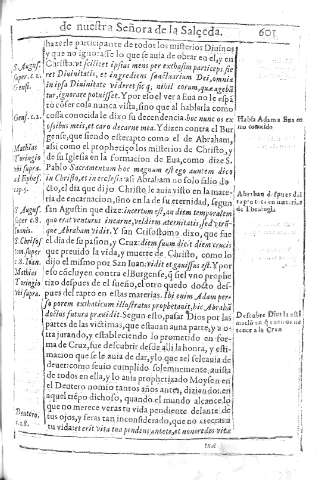 de nuestra Señora de la Salceda. 601
hazerle participante de todos los misterios Diuinos
y que no ignorasse lo que auia de obrar en el, y en
Christo: vt scilicet ipsius mens per exthasim particeps fie
ret Diuinitatis, et ingrediens sanctuarium Dei, omnia
in ipsa Diuinitate videret
tur, ignorare potuisset. Y por eso el ver a Eua no le espã
tò cõser cosa nunca vista, sino que al hablarla como
cosa conocida le dixo su decendencia: hoc nunc os ex
ossibus meis, et caro decarne mea. Y dizen contra el Bur
gense, que siendo este rapto como el de Abraham,
assi como el prophetizo los misterios de Christo, y
de su Iglesia en la formacion de Eua, como dize S.
Pablo Sacramentum hoc magnum est ego autem dico
in Christo, et in ecclesia: assi Abraham no solo
cto, el dia que dijo Christo le auia visto en la mate
ria de encarnacion, sino en la de su eternidad, segun
san Agustin que dize: incertum est, an diem temporalem
quo erat venturus incarne, vel diem aeternitatis, sed vtrũ
que Abraham vidit. Y san Crisostomo dixo, que fue
el dia de su pasion, y Cruz: diem suum dicit diem crucis
que preuido la vida, y muerte de Christo, como lo
dijo el mismo por San Iuan: vidit et gauissus est. Y por
eso cõcluyen contra el Burgense, q̃ si el vno prophe
tizo despues de el sueño, el otro quedo docto des-
pues del rapto en estas materias. Ibi enim Adam per
soporem exthaticum illustratus prophetauit, hic Abrahã
doctus futura preuidit. Segun esto, pasar Dios por las
partes de las victimas, que estauan a una parte, y a o
tra jurando, y estableciendo lo prometido en for
ma de Cruz, fue descubrir desde alli la honra, y esti-
macion que se le auia de dar, y lo que se le auia de
deuer: como se uio cumplido solemnemente, auista
de todos en ella, y lo auia prophetizado Moysen en
el Deutero nomio tantos años antes, diziendo: en
aquel tiẽpo dichoso, quando el mundo alcance lo
que no merece veras tu vida pendiente delante de
tus ojos, y seras tan inconsiderado, que no
tu vida: et erit vita tua pendens ante te, et non credes vitæ
S. August.
Genes.
Mathias
Turingio
vbi supra.
ad Ephes.
cap. 5.
S. August.
Ioannis.
S. Chrisos
tom. super
Mathias
Turingio
vbi supra.
Deutero.
c. 28.
Habla Adam a Eua en
no conocido
Abraham despues del
rapto
Theologia.